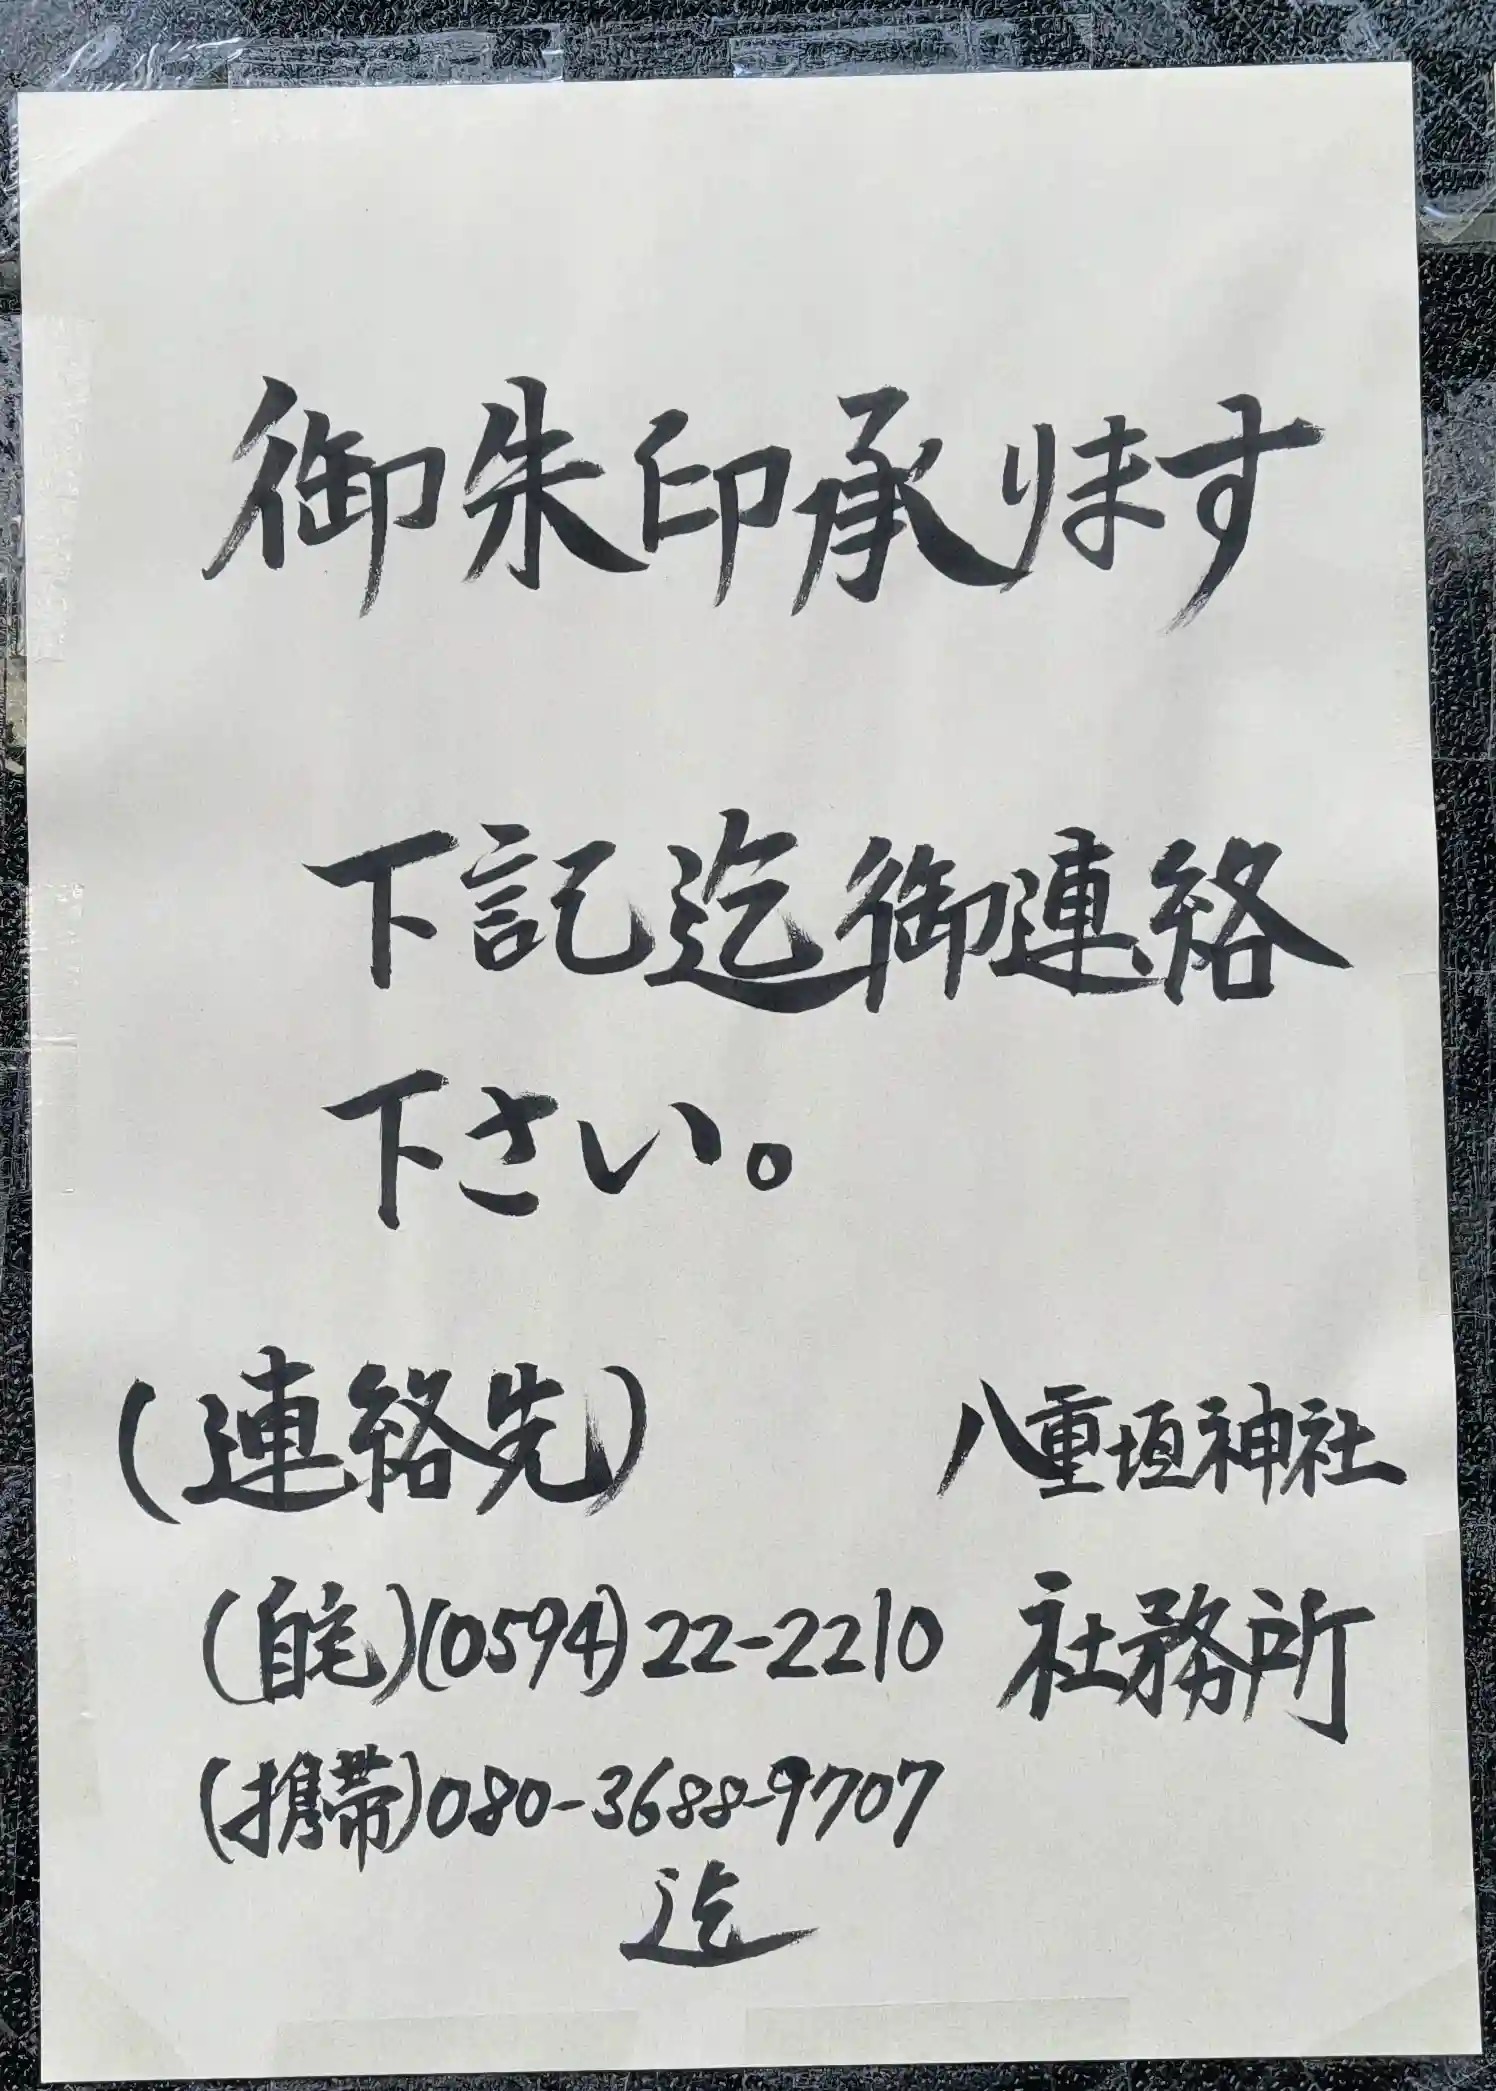 御朱印承ります
下記迄御連絡
下さい。
(連絡先)
(自宅)(0594)22-2210
(携帯)080-3688-9707
迄
八重垣神社
社務所